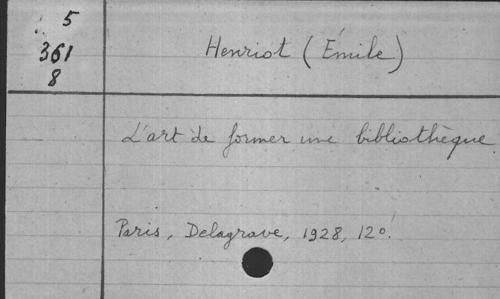 5
361
8
Henriot (Émile)
L'art de former une bibliothèque
Paris, Delagrave, 1928, 12º.